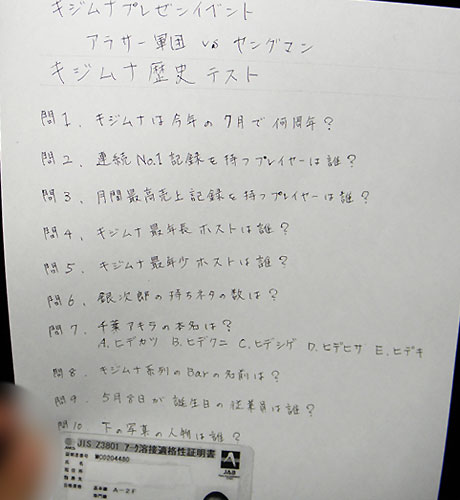 キジムナプレゼンイベント
アラサー軍団 vs ヤングマン
キジムナ歴史テスト
問1、キジムナは今年の7月で何周年？
問2、連続No.1記録を持つプレイヤーは誰？
問3、月間最高売上記録を持つプレイヤーは誰？
問4、キジムナ最年長ホストは誰？
問5、キジムナ最年少ホストは誰？
問6、銀次郎の持ちネタの数は？
問7、千葉アキラの本名は？
A、ヒデカツ B、ヒデクニ C、ヒデシゲ D、ヒデヒサ E、ヒデキ
問8、キジムナ系列のBarの名前は？
問9、5月8日が誕生日の従業員は誰？
問10、下の写真の人物は誰？
JIS Z3801 アーク溶接適格性証明書
証明書番号 MC0204480
氏名
A-2F